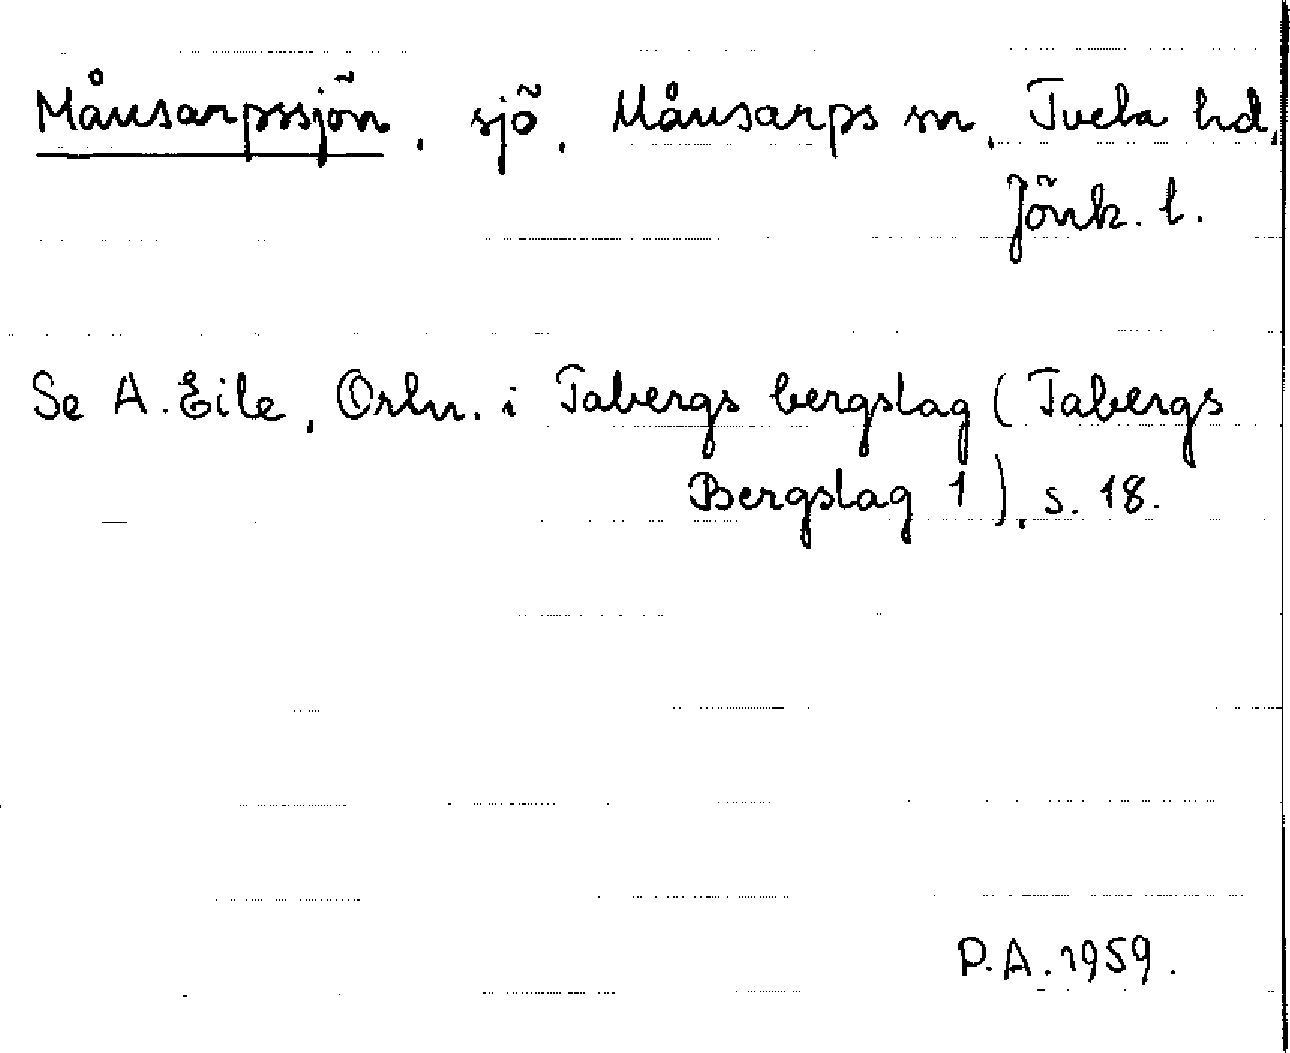 Månsarpssjön, sjö, Månsarps sn, Tveta hd,
Jönk. l.
Se A. Eile, Ortn. i Tabergs bergslag (Tabergs
Bergslag 1), s. 18.
P.A. 1959.